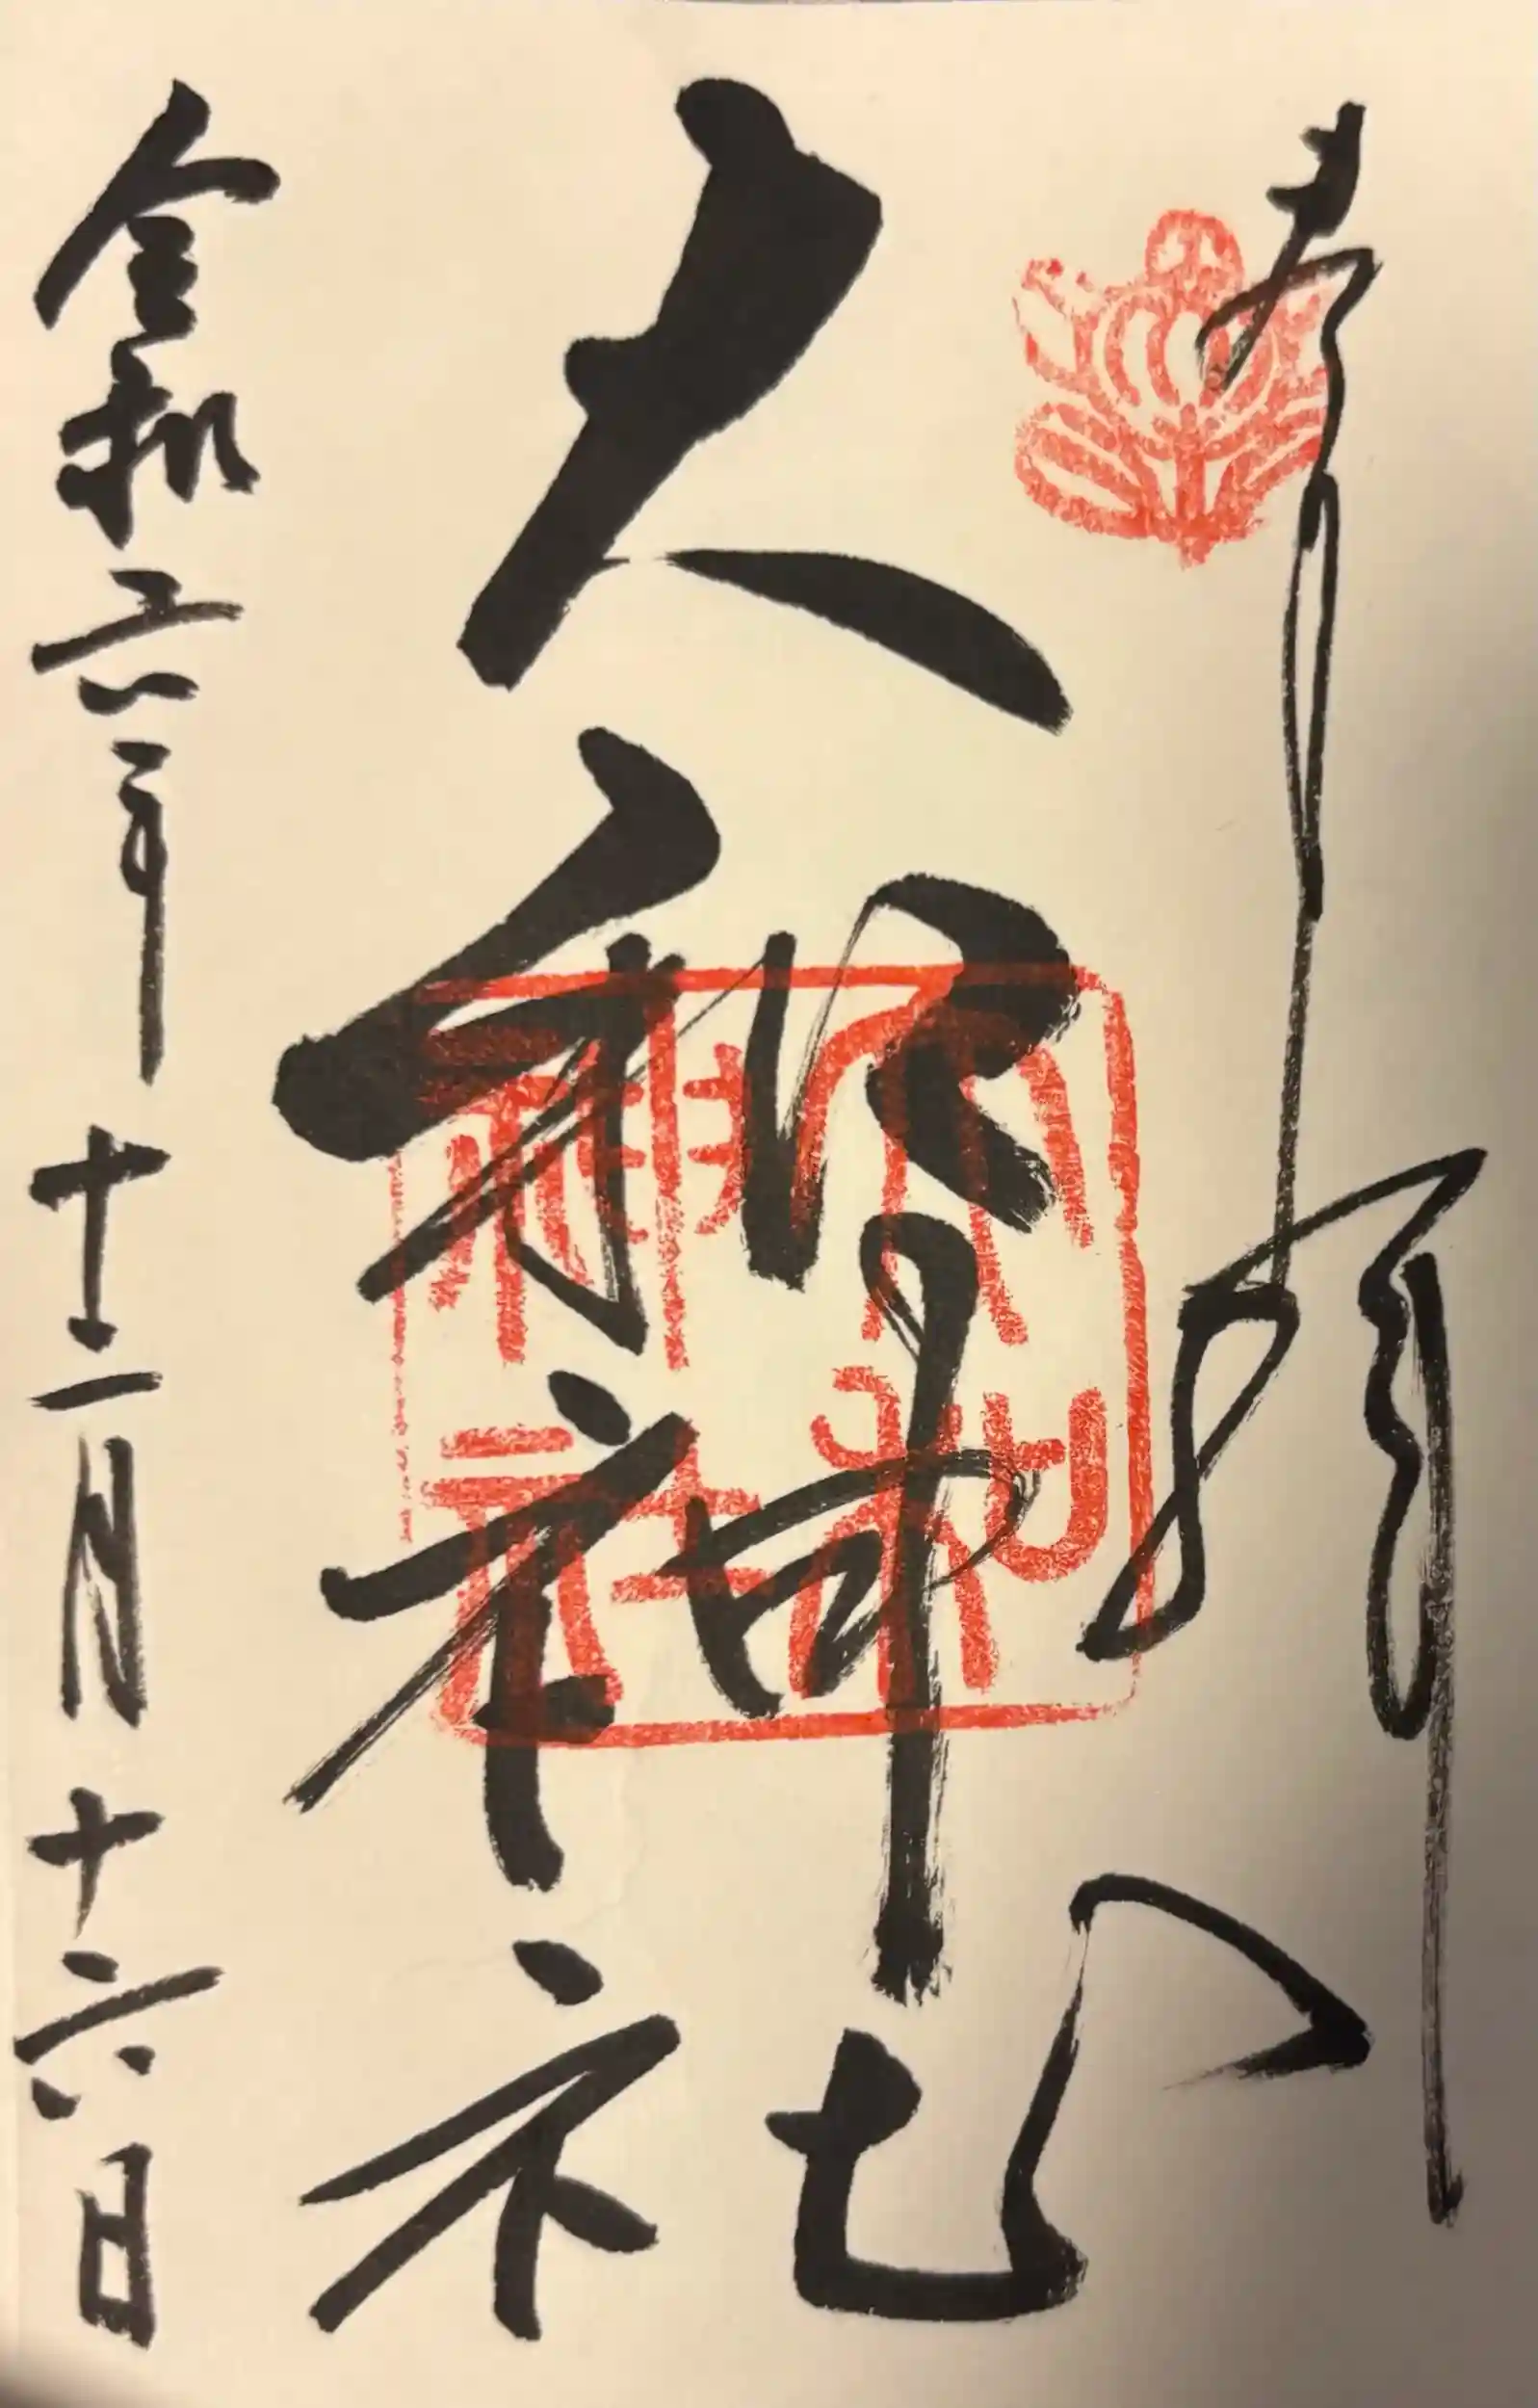 奉拝
大和神社
大和神社
令和六年十二月十六日